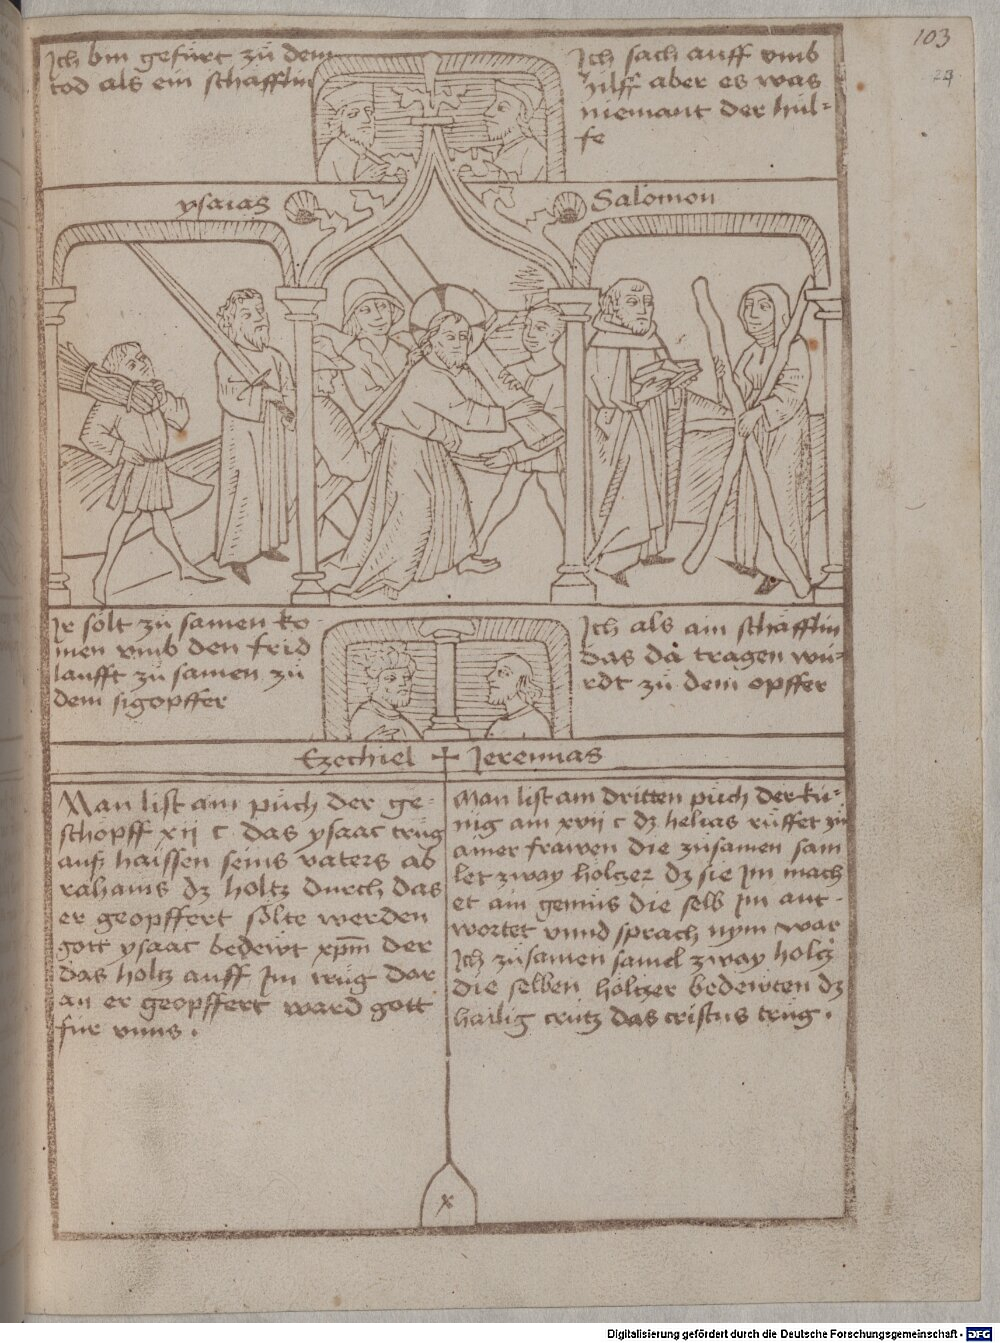 103
29
Ich bin gefürt zü dem
tod als ein schafflin
Ich sach auff vmb
hilff aber es was
niemant der hul-
fe
ysaias
Salomon
Ir sölt zü samen ko-
men vmb den frid
laufft zü samen zü
dem sigopffer
Ich als ain schäfflin
das då tragen wü-
rdt zü dem opffer
Ezechiel + Jeremias
Man list am püch der ge-
schöpff xij c das ysaac trüg
auß haissen seins vaters ab
rahams dz holtz durch das
er geopffert sölte werden
gott ysaac bedewt xpm der
das holtz auff Im trüg dar
an er geopffert ward gott
für vnns .
Man list am dritten püch der kü-
nig am xvij c dz helias rüffet zü
ainer frawen die züsamen sam
let zway höltzer dz sie Im mach
et ain gemüs die selb Im ant-
wortet vnnd sprach nym war
Ich züsamen samel zway höltz
die selben höltzer bedewten dz
hailig crütz das cristus trüg .
x
Digitalisierung gefördert durch die Deutsche Forschungsgemeinschaft - DFG